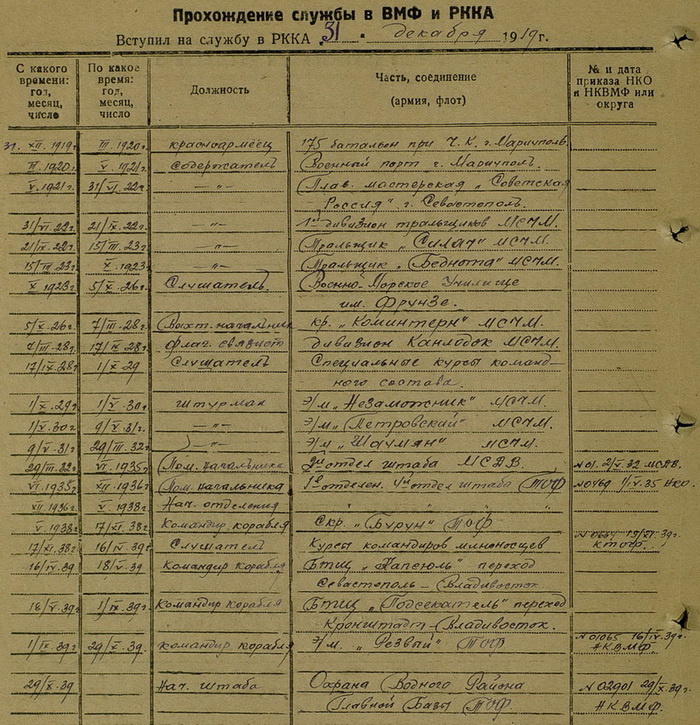 Прохождение службы в ВМФ и РККА
Вступил на службу в РККА „31" декабря 1919г.
С какого времени: год, месяц, число | По какое время: год, месяц, число | Должность | Часть, соединение (армия, флот) | № и дата приказа НКО и НКВМФ или округа
31.XII.1919г. III.1920г. красноармеец 175 батальон при Ч.К. г. Мариуполь.
III.1920г. V.1921г. Содержатель Военный порт г. Мариуполь.
V.1921г. 31/VI.22г. —"— Плав. мастерская „Советская
Россия" г. Севастополь.
31/VI.22г. 21/IX.22г. —"— 1й дивизион тральщиков МСЧМ.
21/IX.22г. 15/III.23г. —"— Тральщик „Силач" МСЧМ.
15/III.23г. X.1923г. —"— Тральщик „Беднота" МСЧМ.
X.1923г. 5/X.26г. Слушатель. Военно-Морское Училище
им. Фрунзе.
5/X.26г. 7/III.28г. Вахт. начальник кр. „Коминтерн" МСЧМ.
7/III.28г. 17/IX.28г. флаг. связист дивизион Канлодок МСЧМ.
17/IX.28г. 1/X.29 Слушатель Специальные курсы команд-
ного состава.
1/X.29г. 1/V.30г. штурман э/м „Незаможник" МСЧМ.
1/V.30г. 9/V.31г. —"— э/м „Петровский" МСЧМ.
9/V.31г. 29/III.32г. —"— э/м „Шаумян" МСЧМ.
29/III.32г. VI.1935г. Пом. начальника отдел штаба МСДВ. №01. 2/V.32 МСДВ.
VI.1935г. XII.1936г. Пом. начальника 1е отделен. отдел штаба ТОФ №0469 1/V.35 НКО.
XII.1936г. V.1938г. Нач. отделения " " "
V.1938г. 17/XI.38г. Командир корабля Скр. „Бурун" ТОФ
17/XI.38г. 16/IV.39г. Слушатель Курсы командиров миноносцев 39г. КТОФ.
16/IV.39г. 18/V.39 Командир корабля БТЩ „Капсюль" переход
Севастополь–Владивосток
18/V.39г. 1/IX.39г. Командир корабля БТЩ „Подсекатель" переход
Кронштадт–Владивосток.
1/IX.39г. 29/X.39г. командир корабля э/м. „Резвый" ТОФ №01065 16/IV.39г. НКВМФ.
29/X.39 Нач. штаба Охрана Водного Района №02901 29/X.39г.
Главной Базы ТОФ НКВМФ.